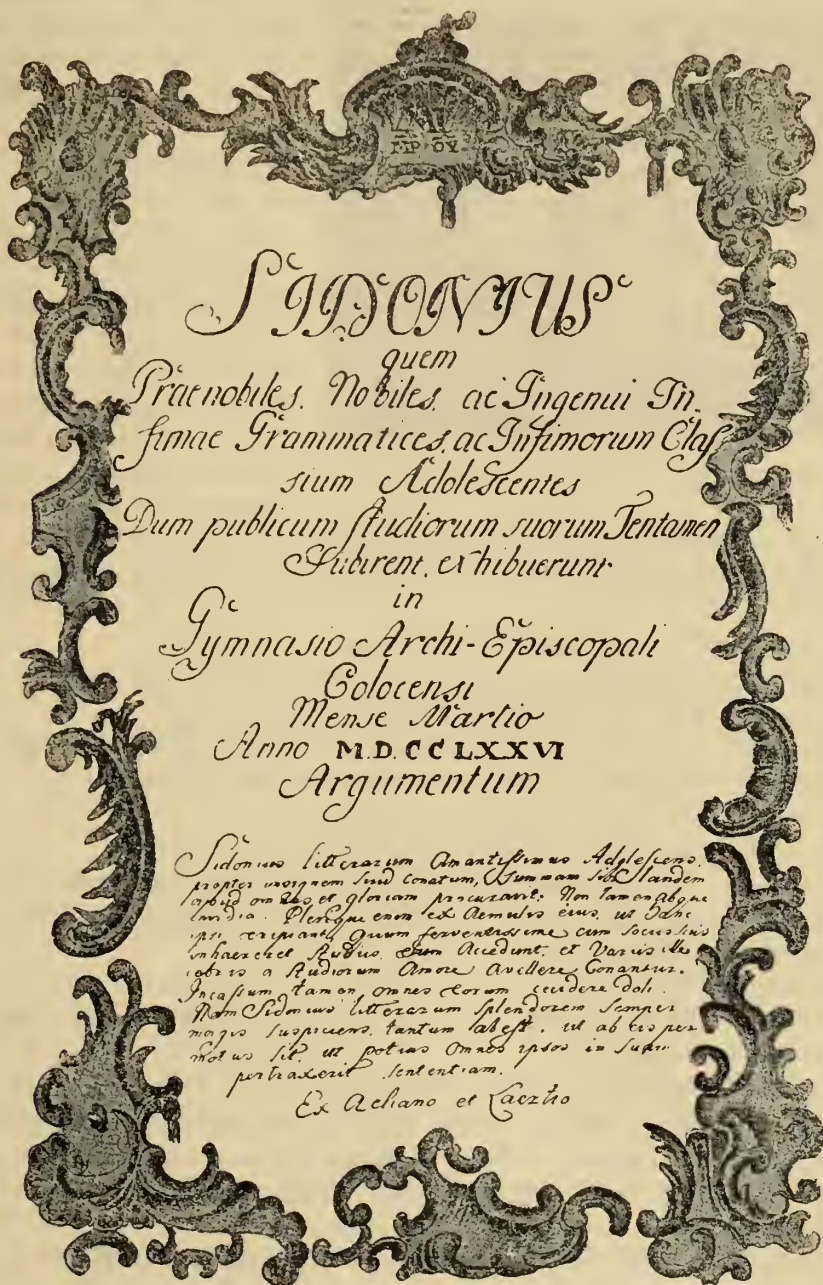 SIDONIUS
quem
Praenobiles, Nobiles, ac Ingenui In-
fimae Grammatices, ac Infimorum Claſ
sium Adolescentes
Dum publicum ſtudiorum suorum Tentamen
Subirent, exhibuerunt
in
Gymnasio Archi-Episcopali
Colocensi
Mense Martio
Anno M.D.CCLXXVI
Argumentum
Sidonius litterarum Amantiſsimus Adolescens,
propter insignem suid Conatum, Summam sibi laudem
apud omnes et gloriam procuravit: Non tamen absque
invidia. Plerique enim ex Aemulis eius, ut
ipsi eripiant, quum ferventissime cum sociis suis
inhaereret studiis, eum Accedunt, et Variis ille
cebris a Studiorum Amore Avellere Conantur.
Incaſsum tamen omnes eorum cecidere doli.
Nam Sidonius litterarum splendorem semper
magis suspiciens, tantum abest, ut ab eis per
motus sit, ut potius omnes ipsos in suam
pertraxerit sententiam.
Ex Aeliano et Laertio